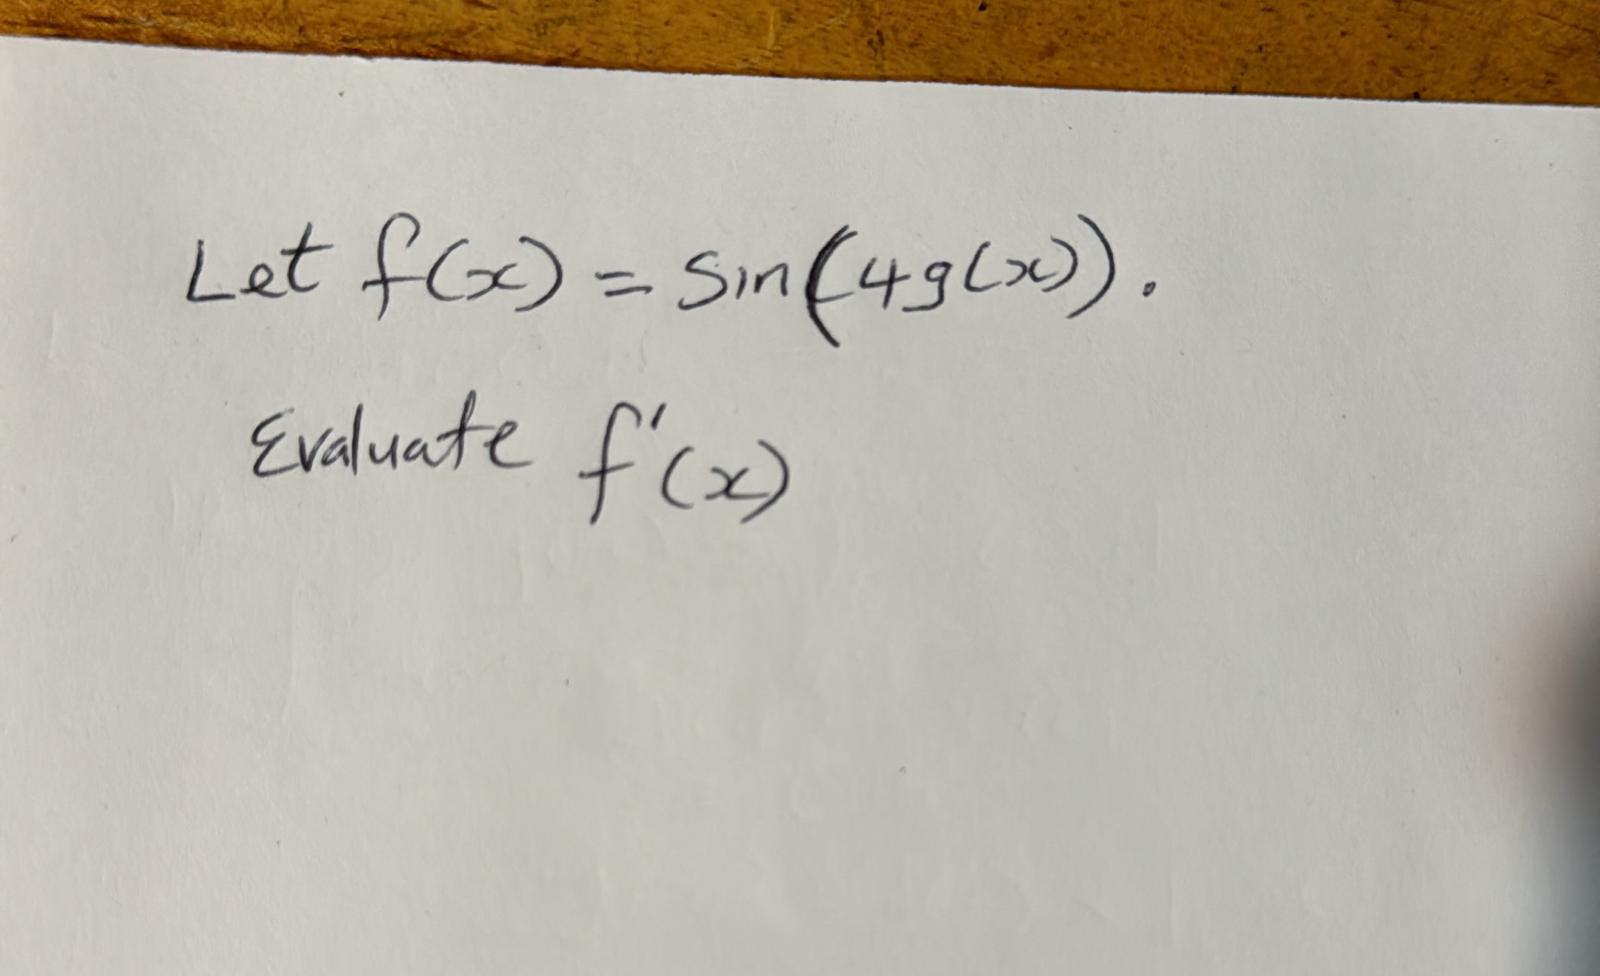 Let f(x) = Sin(4g(x)).
Evaluate f'(x)